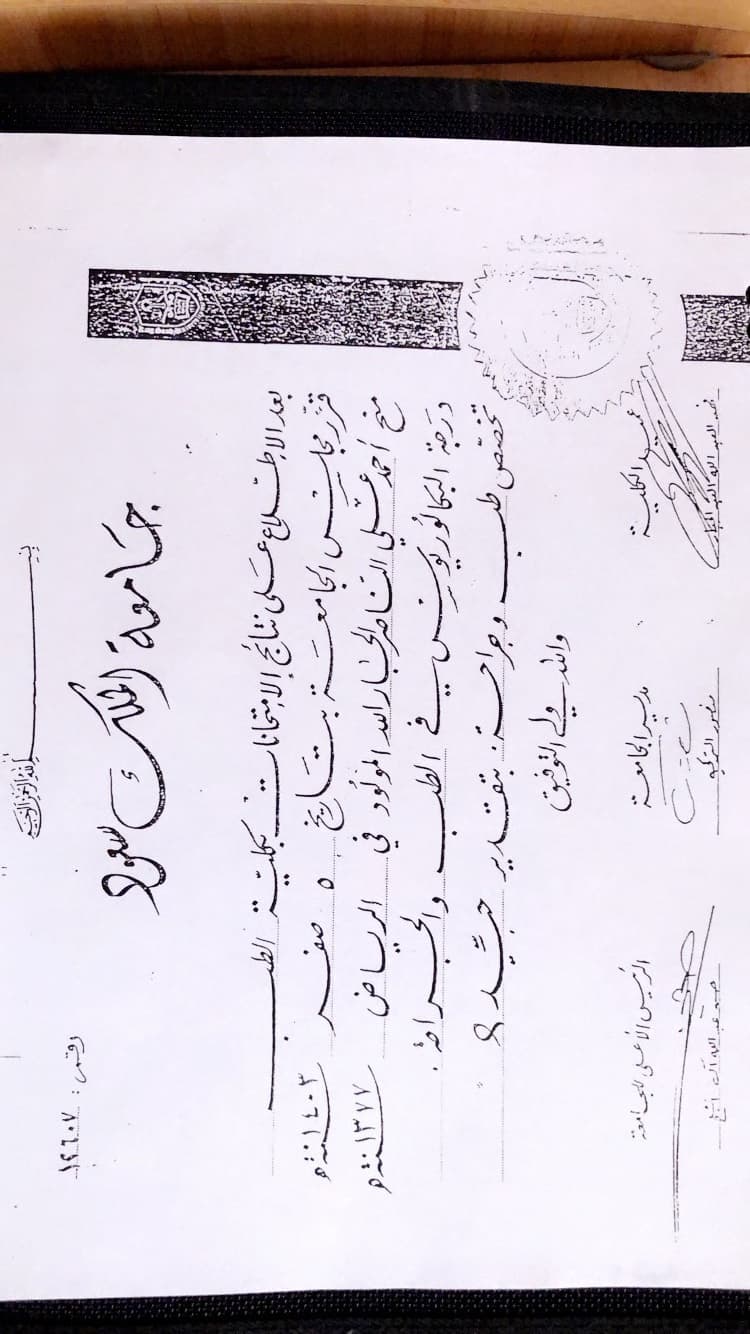 بسم الله الرحمن الرحيم
جامعة الملك سعود
رقم: ١٤٦٠٧
بعد الاطلاع على نتائج الامتحانات بكلية الطب
قرر مجلس الجامعة بتاريخ ٥ صفر سنة ١٤٠٣ هـ
منح أحمد علي الناصر الجارالله المولود في الرياض سنة ١٣٧٧ هـ
درجة البكالوريوس في الطب والجراحة
تخصص طب وجراحة بتقدير جيد
والله ولي التوفيق
عميد الكلية
مدير الجامعة
الرئيس الأعلى للجامعة
منصور التركي